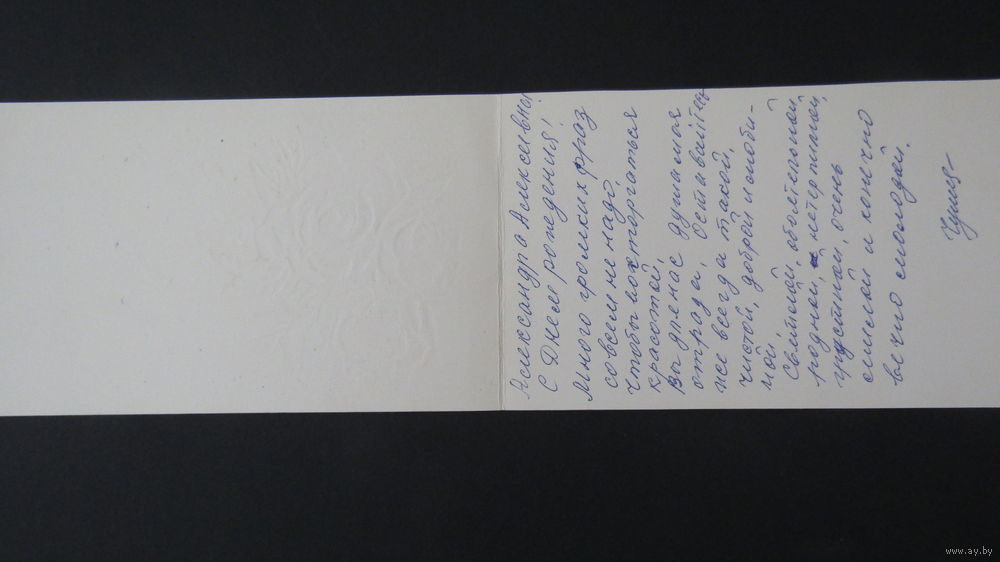 Александра Алексевна!
С Днем рождения!
Много громких фраз
совсем не надо
чтобы восторгаться
красотой,
Вы для нас душа моя
отрада, Оставайтесь
же всегда такой,
чистой, доброй и люби-
мой.
Светлой, обоятельной
родной, нетерпимой,
грустной, очень
милой и конечно
вечно молодой.
www.ay.by